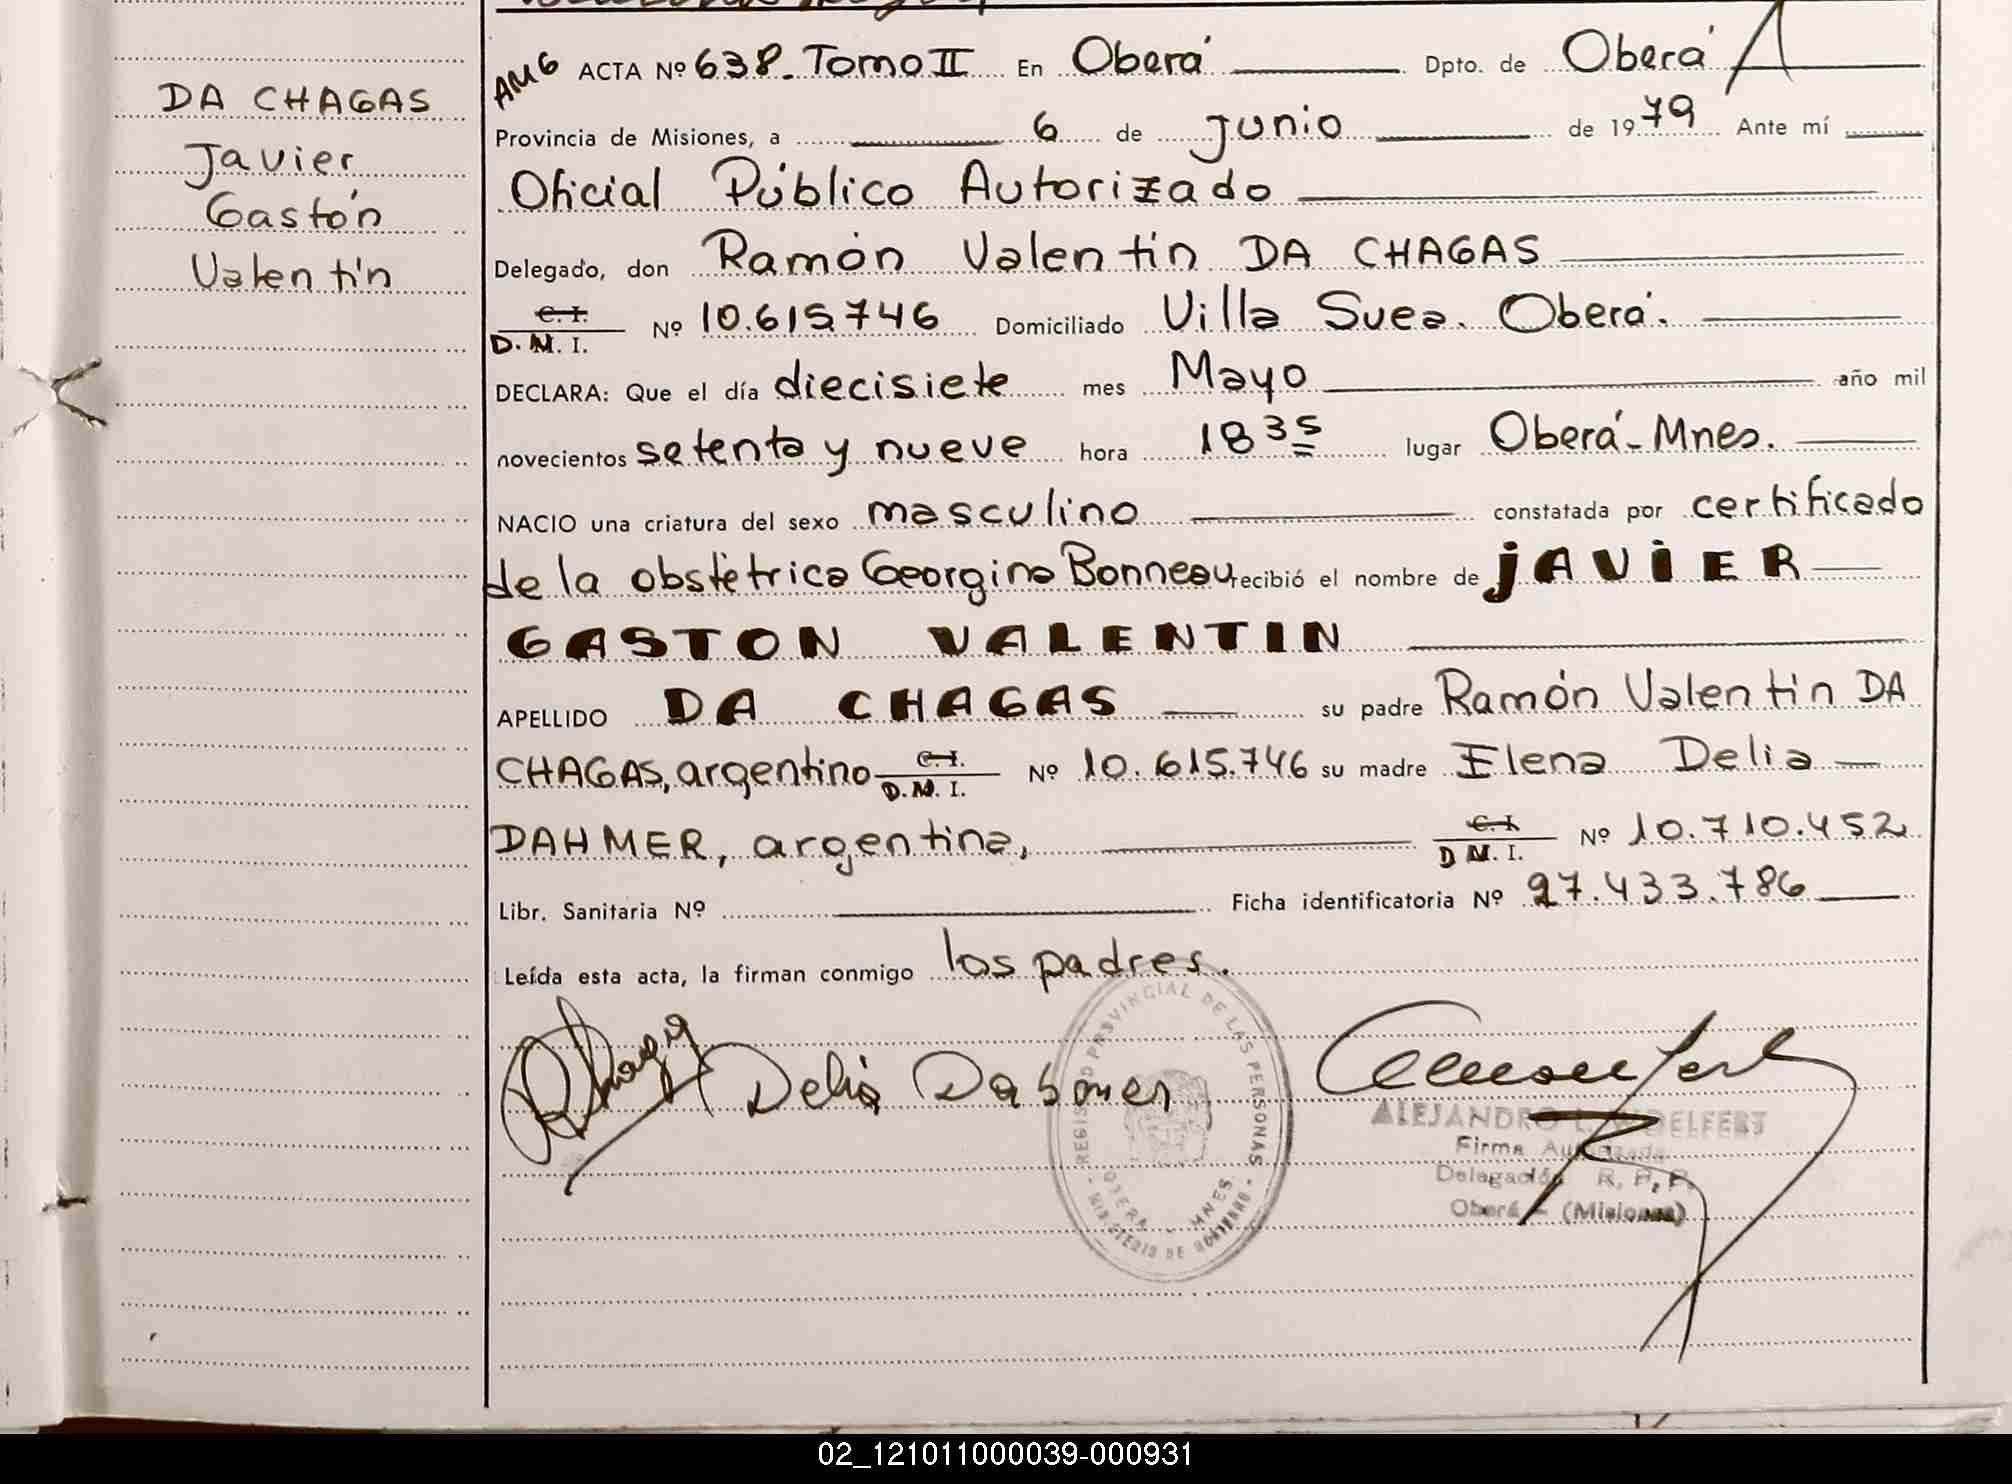 DA CHAGAS
Javier
Gastón
Valentín
AMG ACTA Nº 638. Tomo II En Oberá Dpto. de Oberá
Provincia de Misiones, a 6 de Junio de 1979 Ante mí
Oficial Público Autorizado
Delegado, don Ramón Valentín DA CHAGAS
C. I.
D. M. I. Nº 10.615.746 Domiciliado Villa Svea. Oberá.
DECLARA: Que el día diecisiete mes Mayo año mil
novecientos setenta y nueve hora 18 35 lugar Oberá-Mnes.
NACIO una criatura del sexo masculino constatada por certificado
de la obstétrica Georgina Bonneau recibió el nombre de JAVIER
GASTON VALENTIN
APELLIDO DA CHAGAS su padre Ramón Valentín DA
CHAGAS, argentino C. I. D. M. I. Nº 10.615.746 su madre Elena Delia
DAHMER, argentina, C. I. D M. I. Nº 10.710.452
Libr. Sanitaria Nº Ficha identificatoria Nº 27.433.786
Leída esta acta, la firman conmigo los padres.
Delia Dahmer
REGISTRO PROVINCIAL DE LAS PERSONAS
OBERA - MNES.
MINISTERIO DE GOBIERNO
ALEJANDRO L.
Firma Autorizada
Delegación R. P. P.
Oberá - (Misiones)
02_121011000039-000931